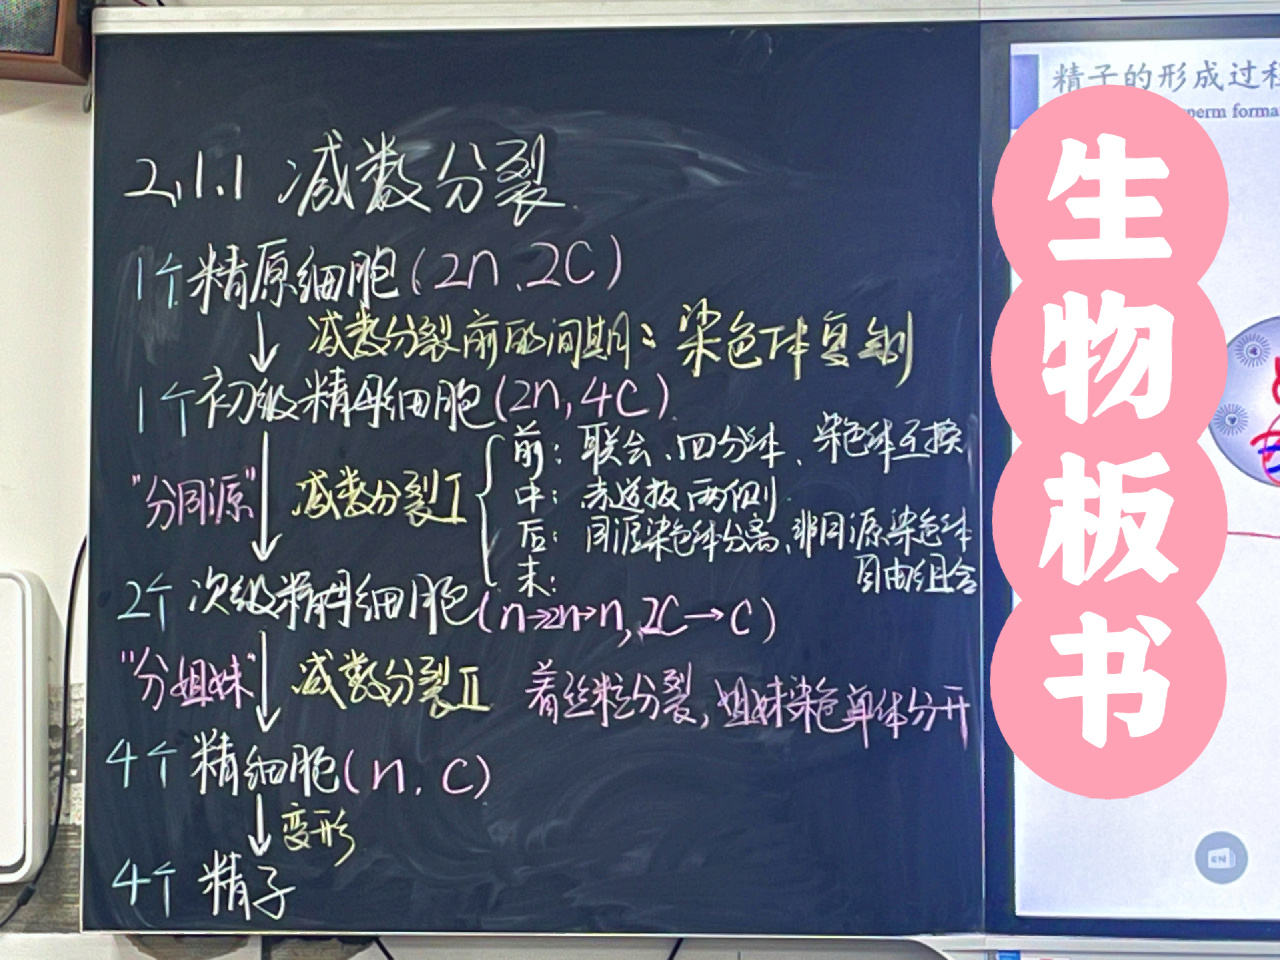 2.1.1 减数分裂
1个精原细胞(2n、2C)
减数分裂前的间期:染色体复制
1个初级精母细胞(2n,4C)
"分同源" 减数分裂I
前:联会、四分体、染色体互换
中:赤道板两侧
后:同源染色体分离、非同源染色体
自由组合
末:
2个次级精母细胞(n→2n→n,2C→C)
"分姐妹" 减数分裂II 着丝粒分裂,姐妹染色单体分开
4个精细胞(n,C)
变形
4个精子
精子的形成过程
perm forma
生物板书
EN